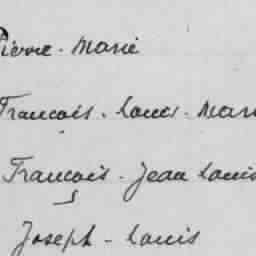 Pierre - Marie
Francois - Louis - Mari
François - Jean Louis
Joseph - Louis